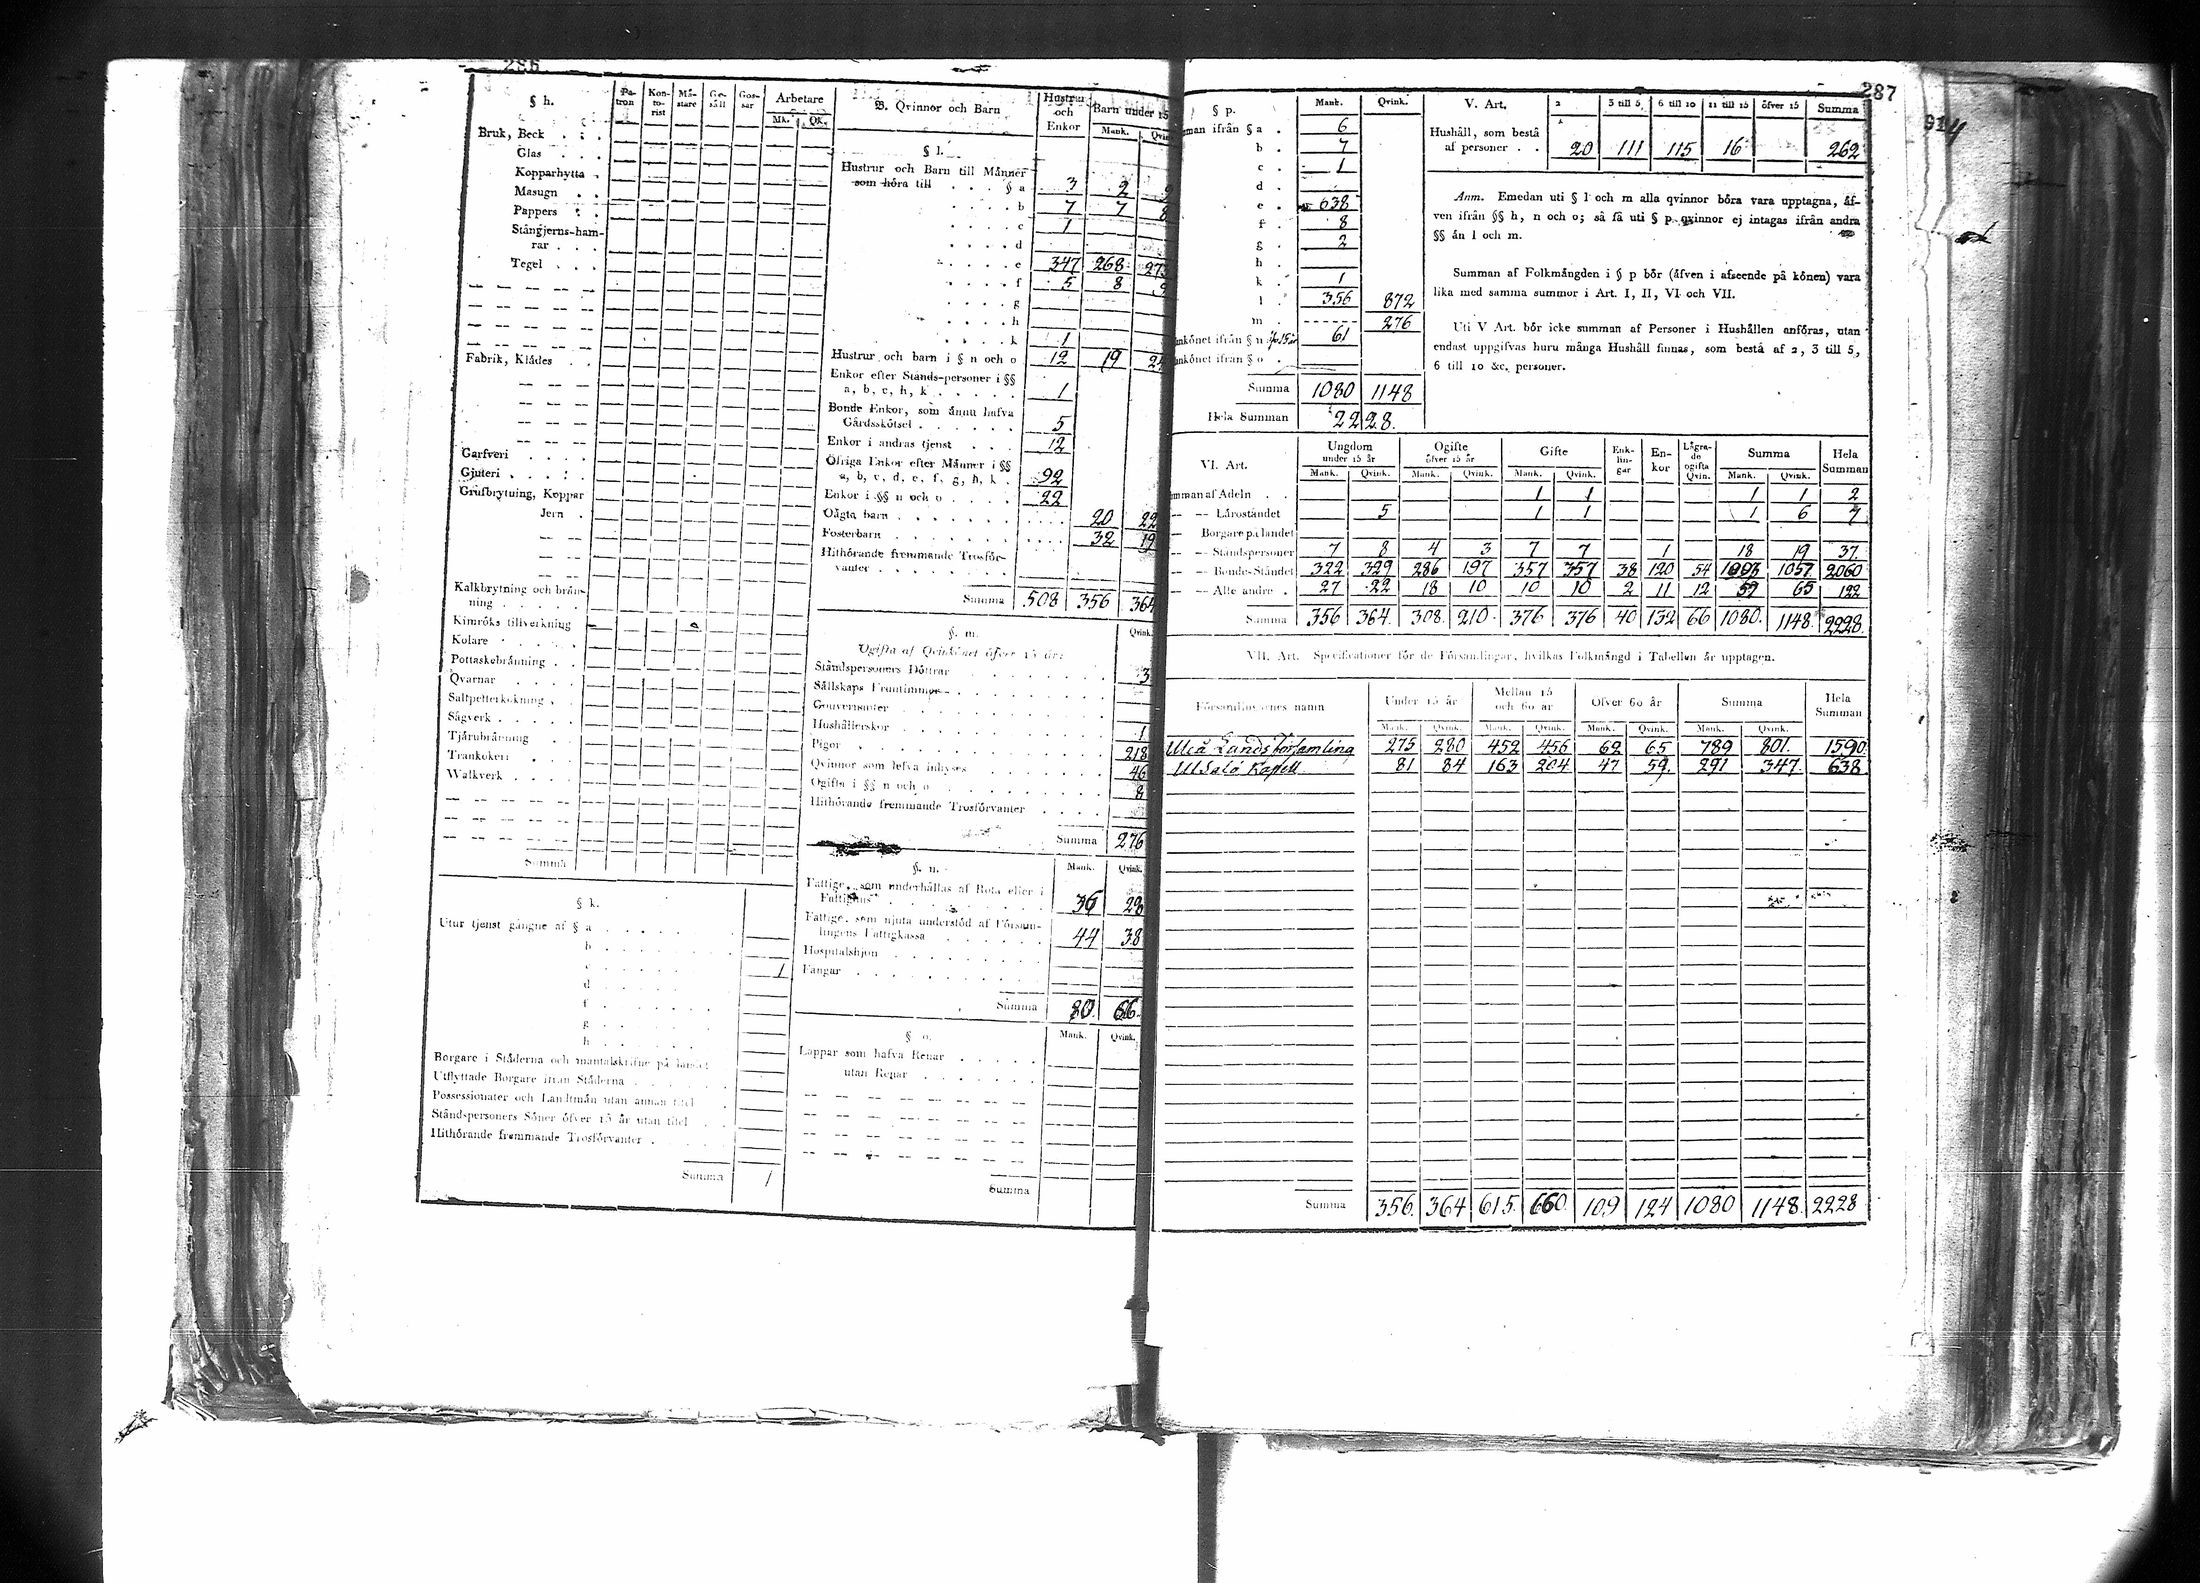 286
§ h.
Pa-
tron
Kon-
to-
rist
Mä-
stare
Ge-
säll
Gos-
sar
Arbetare
Mk. QK.
Bruk, Beck . . .
Glas . . .
Kopparhytta .
Masugn . .
Pappers . .
Stångjerns-ham-
rar . . .
Tegel . . .
Fabrik, Klädes . .
Garfveri . . . .
Gjuteri . . . .
Grufbrytning, Koppar
Jern .
Kalkbrytning och brän-
ning . . . . .
Kimröks tillverkning
Kolare . . . .
Pottaskebränning . .
Qvarnar . . . .
Saltpetterkokning . .
Sågverk . . . . .
Tjärubränning . .
Trankokeri . .
Walkverk . . .
Summa
§ k.
Utur tjenst gångne af § a . . . . .
b . . . . .
c . . . . . 1
d . . . . .
f . . . . .
g . . . . .
h . . . . .
Borgare i Städerna och mantalskrifne på landet
Utflyttade Borgare ifrån Städerna . . . . .
Possessionater och Landtmän utan annan titel .
Ståndspersoners Söner öfver 15 år utan titel . .
Hithörande fremmande Trosförvanter . . . .
Summa 1
B. Qvinnor och Barn
Hustrur
och
Enkor
Barn under 15
Mank. Qvin
§ l.
Hustrur och Barn till Männer
som höra till . . . § a 3 2 9
. . . . b 7 7 8
. . . . c 1
. . . . d
. . . . e 347 268 273
. . . . f 5 8 9
. . . . g
. . . . h
. . . . k 1
Hustrur och barn i § n och o 12 19 24
Enkor efter Stånds-personer i §§
a, b, c, h, k . . . . . 1
Bonde Enkor, som ännu hafva
Gårdsskötsel . . . . . . 5
Enkor i andras tjenst . . . 12
Öfriga Enkor efter Männer i §§
a, b, c, d, e, f, g, h, k . 92
Enkor i §§ n och o . . . . 22
Oägta barn . . . . . . . . . . . 20 22
Fosterbarn . . . . . . . . . . . 32 19
Hithörande fremmande Trosför-
vanter . . . . . . . .
Summa 508 356 364
§. m.
Qvink.
Ogifta af Qvinkönet öfver 15 år:
Ståndspersoners Döttrar . . . . . . . 3
Sällskaps Fruntimmer . . . . . . .
Gouvernanter . . . . . . . . .
Hushållerskor . . . . . . . . . 1
Pigor . . . . . . . . . . . 218
Qvinnor som lefva inhyses . . . . . . 46
Ogifta i §§ n och o . . . . . . . . 8
Hithörande fremmande Trosförvanter . . . .
Summa 276
§. n.
Mank. Qvink.
Fattige, som underhållas af Rota eller i
Fattighus . . . . . . . . 36 28
Fattige, som njuta understöd af Försam-
lingens Fattigkassa . . . . . . 44 38
Hospitalshjon . . . . . . . . .
Fångar . . . . . . . . . .
Summa 80. 66.
§ o.
Mank. Qvink.
Lappar som hafva Renar . . . . .
utan Renar . . . . . . .
Summa
287
914
§ p.
Mank. Qvink.
man ifrån § a . 6
b . 7
c . 1
d .
e . 638
f . 8
g . 2
h .
k . 1
l . 356 872
m . 276
nkönet ifrån § n 61
nkönet ifrån § o .
Summa 1080 1148
Hela Summan 2228.
V. Art. 2 3 till 5 6 till 10 11 till 15 öfver 15 Summa
Hushåll, som bestå
af personer . . 20 111 115 16 262
Anm. Emedan uti § l och m alla qvinnor böra vara upptagna, äf-
ven ifrån §§ h, n och o; så få uti § p qvinnor ej intagas ifrån andra
§§ än l och m.
Summan af Folkmängden i § p bör (äfven i afseende på könen) vara
lika med samma summor i Art. I, II, VI och VII.
Uti V Art. bör icke summan af Personer i Hushållen anföras, utan
endast uppgifvas huru många Hushåll finnas, som bestå af 2, 3 till 5,
6 till 10 &c. personer.
VI. Art.
Ungdom
under 15 år
Ogifte
öfver 15 år
Gifte
Enk-
lin-
gar
En-
kor
Lägra-
de
ogifta
Qvin.
Summa
Hela
Summan
Mank. Qvink. Mank. Qvink. Mank. Qvink. Mank. Qvink.
mman af Adeln . . 1 1 1 1 2
— — Läroståndet 5 1 1 1 6 7
— Borgare på landet
— — Ståndspersoner 7 8 4 3 7 7 1 18 19 37.
— — Bonde-Ståndet 322 329 286 197 357 357 38 120 54 1003 1057 2060
— — Alle andre . 27 22 18 10 10 10 2 11 12 59 65 122
Summa 356 364. 308. 210. 376 376 40 132 66 1080. 1148. 2228.
VII. Art. Specificationer för de Församlingar, hvilkas Folkmängd i Tabellen är upptagen.
Församlingarnes namn
Under 15 år
Mellan 15
och 60 år
Öfver 60 år
Summa
Hela
Summan
Mank. Qvink. Mank. Qvink. Mank. Qvink. Mank. Qvink.
Ulså Landsförsamling 275 280 452 456 62 65 789 801. 1590.
Ulsalö Kapell 81 84 163 204 47 59. 291 347. 638
Summa 356. 364 615. 660. 109 124 1080 1148. 2228